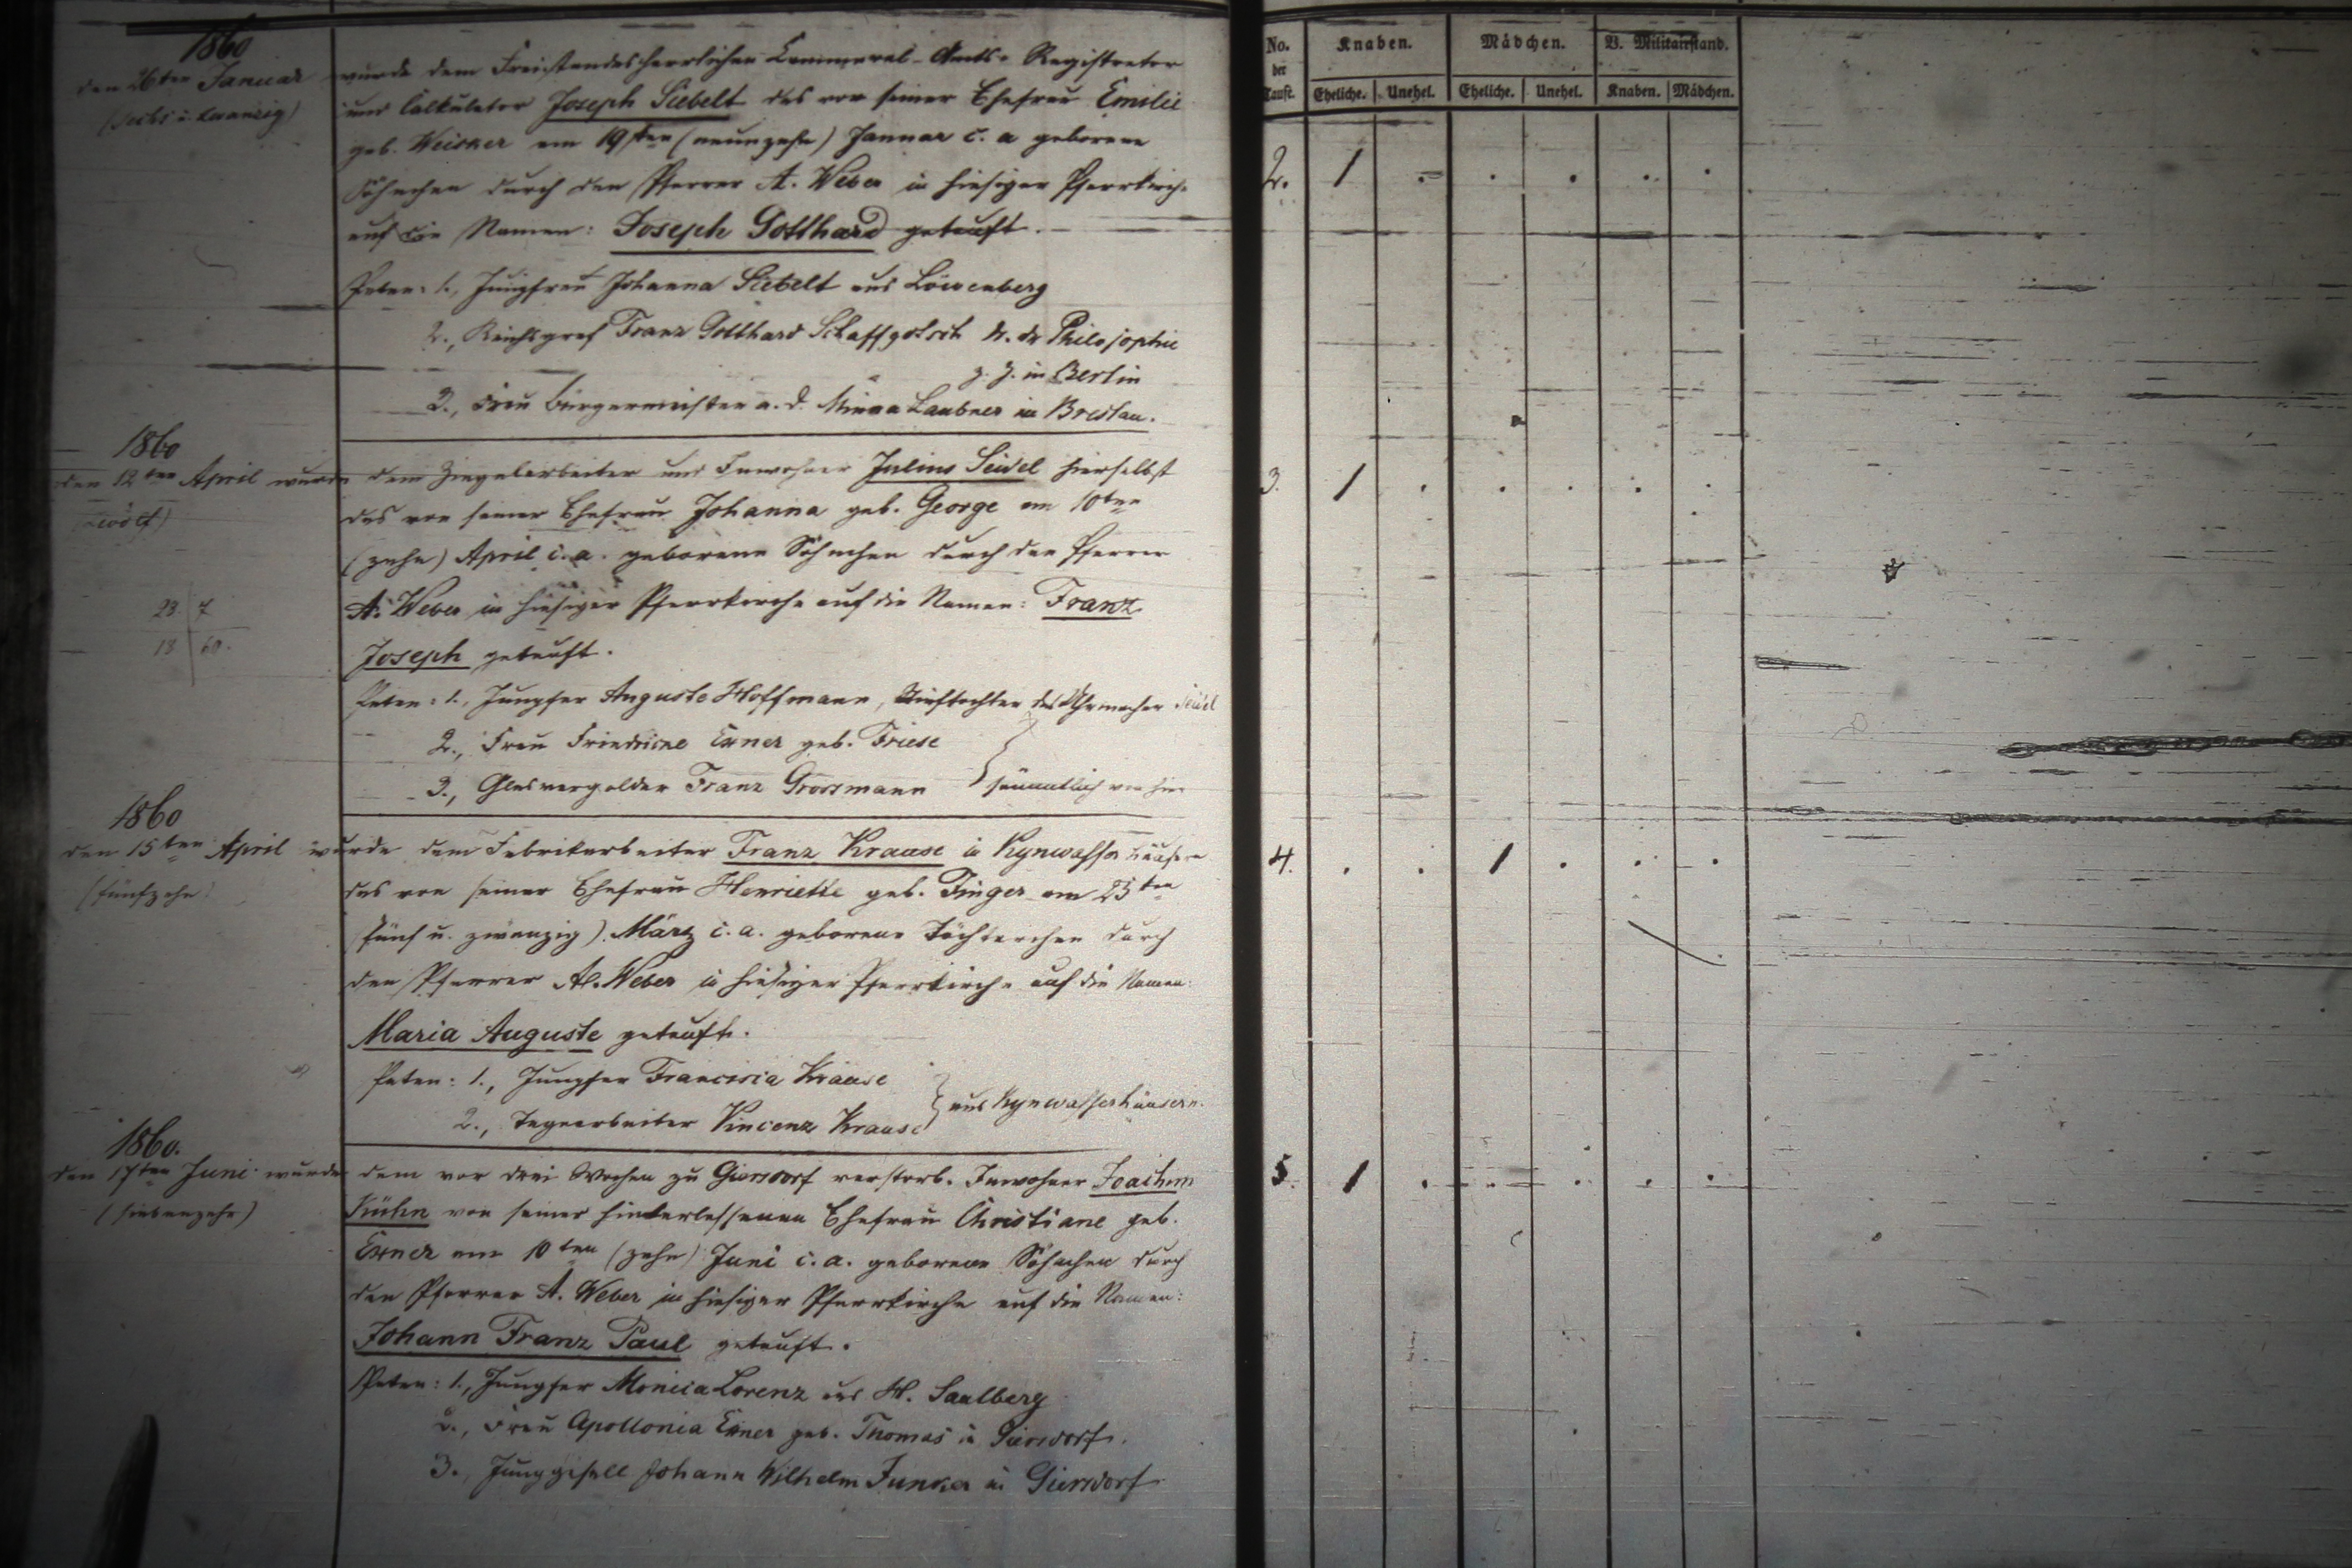 1860
den 26ten Januar wurde dem Freistandesherrlichen Cammeral-Amts-Registrator
(sechs u. zwanzig) und Calkulator Joseph Siebelt das von seiner Ehefrau Emilie
geb. Weisker am 19ten (neunzehn) Januar c. a geborene
Söhnchen durch den Pfarrer A. Weber in hiesiger Pfarrkirche
auf die Namen: Joseph Gotthard getauft.
Paten: 1., Jungfrau Johanna Siebelt aus Löwenberg
2., Reichsgraf Franz Gotthard Schaffgotsch Dr. der Philosophie
z. Z. in Berlin
3., Frau Bürgermeister a. d. Minna Laubner in Breslau.
1860
den 12ten April wurde dem Ziegelarbeiter und Inwohner Julius Seidel hierselbst
(zwölf) das von seiner Ehefrau Johanna geb. George am 10ten
(zehn) April c. a. geborene Söhnchen durch den Pfarrer
A. Weber in hiesiger Pfarrkirche auf die Namen: Franz
23 7
18 60.
Joseph getauft.
Paten: 1., Jungfer Auguste Hoffmann, Stieftochter des Uhrmacher Seidel
2., Frau Friedricke Exner geb. Friese
3., Glasvergolder Franz Grossmann } sämmtlich von hier
1860
den 15ten April wurde dem Fabrikarbeiter Franz Krause in Kynwasserhäusern
(fünfzehn) das von seiner Ehefrau Henriette geb. Finger am 25ten
(fünf u. zwanzig) März c. a. geborene Töchterchen durch
den Pfarrer A. Weber in hiesiger Pfarrkirche auf die Namen:
Maria Auguste getauft.
Paten: 1., Jungfer Francisca Krause
2., Tagearbeiter Vincenz Krause } aus Kynwasserhäusern.
1860.
den 17ten Juni wurde dem vor drei Wochen zu Giersdorf verstorb. Inwohner Joachim
(siebenzehn) Kühn von seiner hinterlassenen Ehefrau Christiane geb.
Exner am 10ten (zehn) Juni c. a. geborene Söhnchen durch
den Pfarrer A. Weber in hiesiger Pfarrkirche auf die Namen:
Johann Franz Paul getauft.
Paten: 1., Jungfer Monica Lorenz aus H. Saalberg
2., Frau Apollonia Exner geb. Thomas in Giersdorf.
3., Junggesell Johann Wilhelm Junker in Giersdorf
No. der Tauft. Knaben. Mädchen. B. Militairstand.
Eheliche. Unehel. Eheliche. Unehel. Knaben. Mädchen.
2. 1 . . . . .
3. 1 . . . . .
4. . . 1 . . .
5. 1 . . . . .